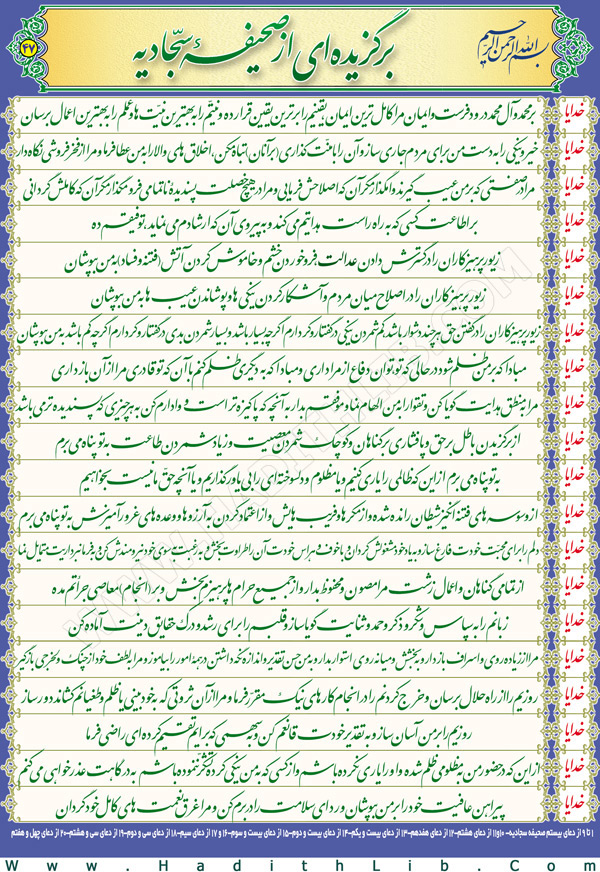 بسم الله الرحمن الرحیم
برگزیده‌ای از صحیفهٔ سجّادیه
۴۷
خدایا بر محمد و آل محمد درود فرست و ایمان مرا کامل ترین ایمان و یقینم را برترین یقین قرار ده و نیتم را به بهترین نیّت ها و عملم را به بهترین اعمال برسان
خدایا خیر و نیکی را به دست من برای مردم جاری ساز و آن را با منّت گذاری (بر آنان) تباه مکن، اخلاق های والا را به من عطا فرما و مرا از فخرفروشی نگاه دار
خدایا در من صفتی که بر من عیب گیرند وا مگذار مگر آن که اصلاحش فرمایی و مرا در هیچ خصلت پسندیدهٔ ناتمامی فرو مگذار مگر آن که کاملش گردانی
خدایا بر اطاعت کسی که به راه راست هدایتم می کند و به پیروی آن که ارشادم می نماید، توفیقم ده
خدایا زیور پرهیزکاران را در گسترش دادن عدالت، فرو خوردن خشم و خاموش کردن آتش (فتنه و فساد) به من بپوشان
خدایا زیور پرهیزکاران را در اصلاح میان مردم و آشکار کردن نیکی ها و پوشاندن عیب ها به من بپوشان
خدایا زیور پرهیزکاران را در گفتن حق هر چند دشوار باشد، کم شمردن نیکی در گفتار و کردارم اگر چه بسیار باشد و بسیار شمردن بدی در گفتار و کردارم اگر چه کم باشد به من بپوشان
خدایا مبادا که بر من ظلم شود در حالی که تو توان دفاع از مرا داری و مبادا که به دیگری ظلم کنم با آن که تو قادری مرا از آن بازداری
خدایا مرا به منطق هدایت گویا کن و تقوا را به من الهام نما و موفقم بدار به آنچه که پاکیزه تر است و وادارم کن به هر چیزی که پسندیده تر می باشد
خدایا از برگزیدن باطل بر حق و پافشاری بر گناهان و کوچک شمردن معصیت و زیاد شمردن طاعت به تو پناه می برم
خدایا به تو پناه می برم از این که ظالمی را یاری کنیم و یا مظلوم و دلسوخته ای را بی یاور گذاریم و یا آنچه حقّ ما نیست بخواهیم
خدایا از وسوسه های فتنه انگیز شیطان رانده شده و از مکرها و فریب هایش و از اعتماد کردن به آرزوها و وعده های غرورآمیزش به تو پناه می برم
خدایا دلم را برای محبت خودت فارغ ساز و به یاد خود مشغولش گردان و با خوف و هراس خودت آن را طراوت بخش و به رغبت سوی خود نیرومندش کن و به فرمانبرداریت متمایل نما
خدایا از تمامی گناهان و اعمال زشت مرا مصون و محفوظ بدار و از جمیع حرام ها پرهیزم بخش و بر (انجام) معاصی جرائتم مده
خدایا زبانم را به سپاس و شکر و ذکر و حمد و ثنایت گویا ساز و قلبم را برای رشد و درک حقایق دینت آماده کن
خدایا مرا از زیاده روی و اسراف باز دار و به بخشش و میانه روی استوار بدار و به من حسن تقدیر و اندازه نگه داشتن در همهٔ امور را بیاموز و مرا به لطف خود از چنگ ولخرجی بازگیر
خدایا روزیم را از راه حلال برسان و خرج کردنم را در انجام کارهای نیک مقرّر فرما و مرا از آن ثروتی که به خودبینی یا ظلم و طغیانم کشاند دور ساز
خدایا روزیم را بر من آسان ساز و به تقدیر خودت قانعم کن و به سهمی که برایم تقسیم کرده ای راضی فرما
خدایا از این که در حضور من به مظلومی ظلم شده و او را یاری نکرده باشم و از کسی که به من نیکی کرده تشکر ننموده باشم به درگاهت عذرخواهی می کنم
خدایا پیراهن عافیت خود را بر من بپوشان و ردای سلامت را در برم کن و مرا غرق نعمت های کامل خود گردان
۱ تا ۹ از دعای بیستم صحیفه سجادیه- ۱۰و۱۱ از دعای هشتم-۱۲ از دعای هفدهم-۱۳ از دعای بیست و یکم-۱۴ از دعای بیست و دوم-۱۵ از دعای بیست و سوم-۱۶ و ۱۷ از دعای سیم-۱۸ از دعای سی و دوم-۱۹ از دعای سی و هشتم-۲۰ از دعای چهل و هفتم
www.HadithLib.Com